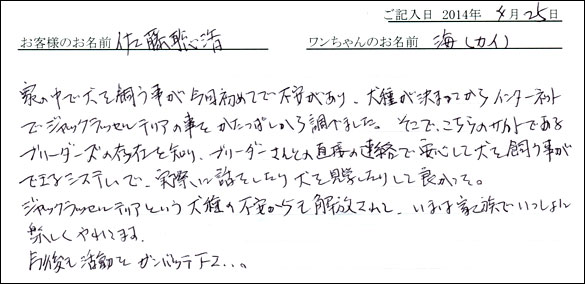 ご記入日 2014年 4月 25日
お客様のお名前 佐藤聡浩 ワンちゃんのお名前 海(カイ)
家の中で犬を飼う事が今回初めてで不安があり、犬種が決まってからインターネット
でジャックラッセルテリアの事をかたっぱしから調べました。そこで、こちらのサイトである
ブリーダーズの存在を知り、ブリーダーさんとの直接の連絡で安心して犬を飼う事が
できるシステムで、実際に話をしたり犬を見学したりして良かった。
ジャックラッセルテリアという犬種の不安からも解放されて、いまは家族でいっしょに
楽しくやれてます。
今後も活動をガンバッテ下さ...。